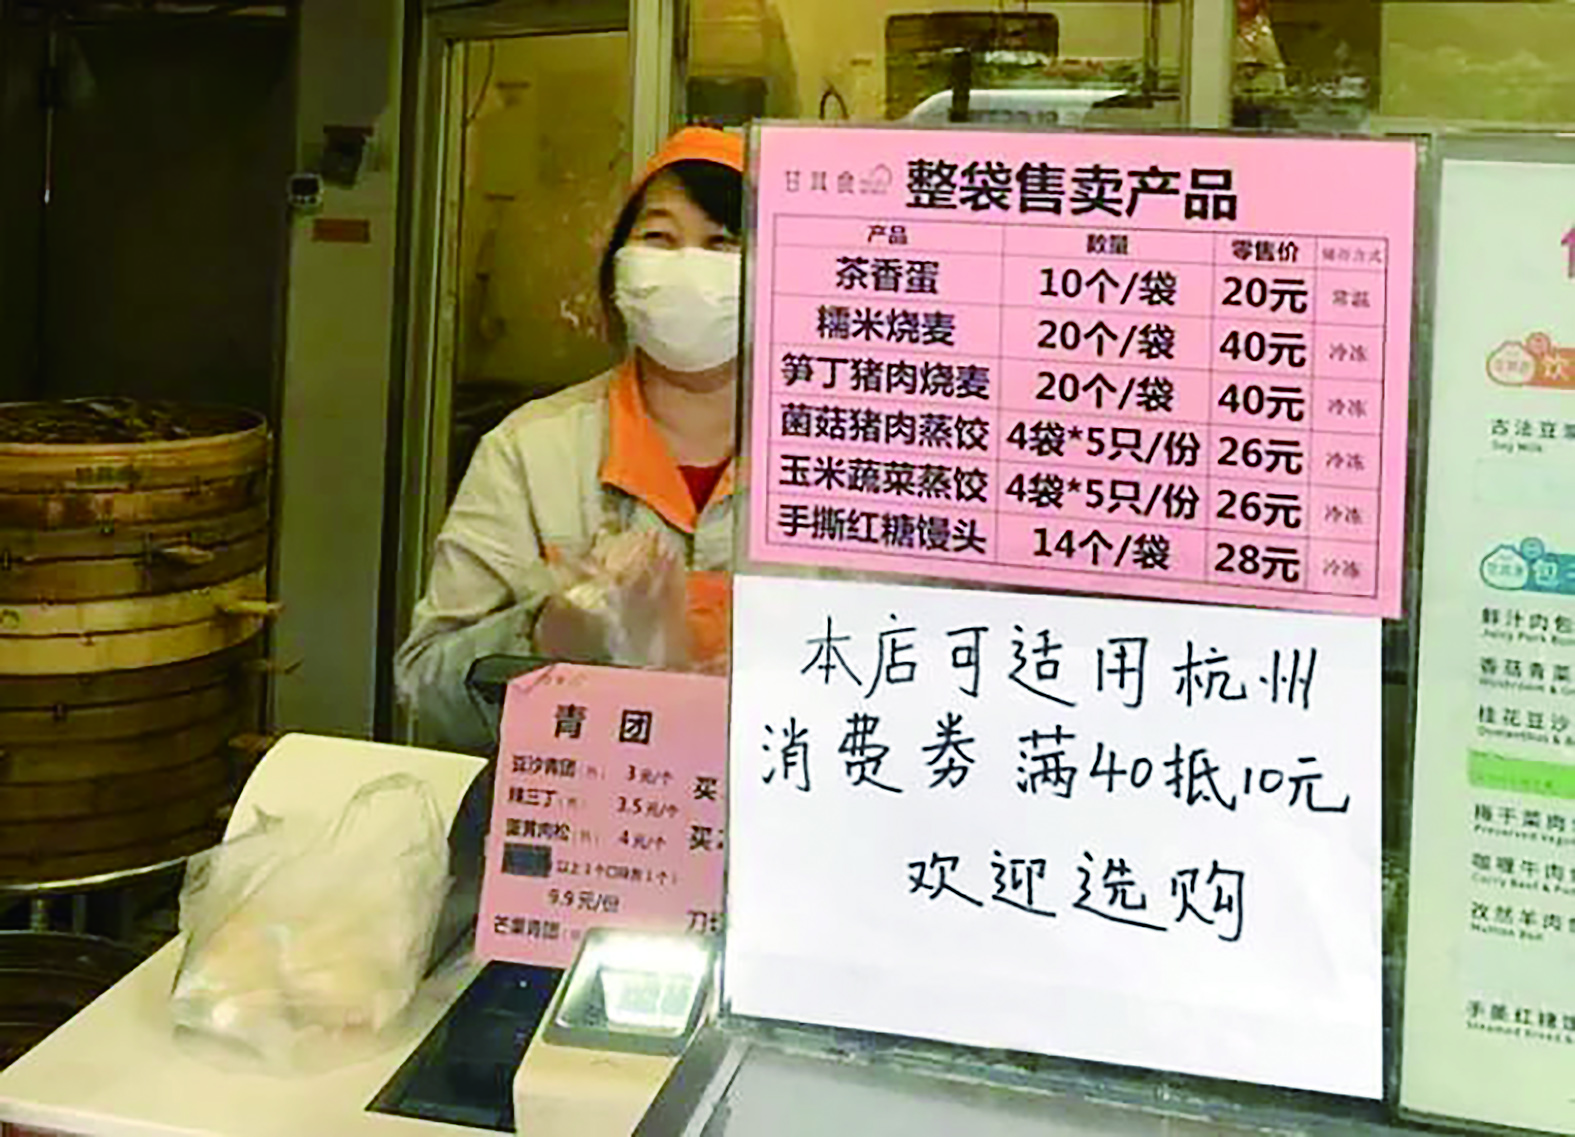 甘其食
整袋售卖产品
产品 数量 零售价 储存方式
茶香蛋 10个/袋 20元 常温
糯米烧麦 20个/袋 40元 冷冻
笋丁猪肉烧麦 20个/袋 40元 冷冻
菌菇猪肉蒸饺 4袋*5只/份 26元 冷冻
玉米蔬菜蒸饺 4袋*5只/份 26元 冷冻
手撕红糖馒头 14个/袋 28元 冷冻
本店可适用杭州
消费券 满40抵10元
欢迎选购
青团
豆沙青团 3元/个 买
辣三丁 3.5元/个
蛋黄肉松 4元/个 买
9.9元/份
芒果青团 刀切
古法豆浆
Soy Milk
鲜汁肉包
Juicy Pork Bun
香菇青菜
桂花豆沙
梅干菜肉
咖喱牛肉
孜然羊肉
Mutton Bun
手撕红糖馒